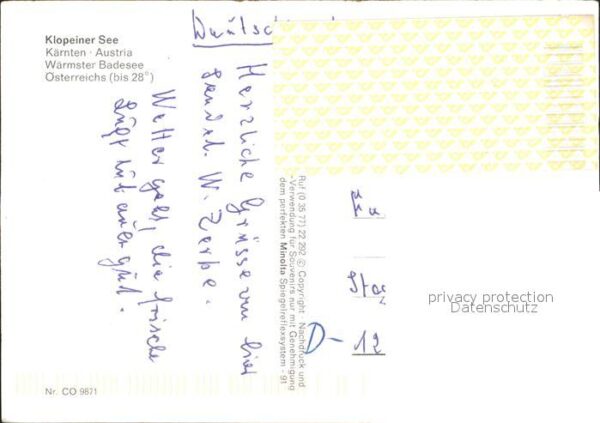 Klopeiner See
Kärnten · Austria
Wärmster Badesee
Österreichs (bis 28°)
Herzliche Grüsse von hier
sendet W. Zerbe.
Wetter geht, die frische
Luft tut aber gut.
Ruf (0 35 77) 22 292 © Copyright · Nachdruck und
Verwendung für Souvenirs nur mit Genehmigung
dem perfekten Minolta Spiegelreflexsystem - 91
D- 12
privacy protection
Datenschutz
Nr. CO 9871